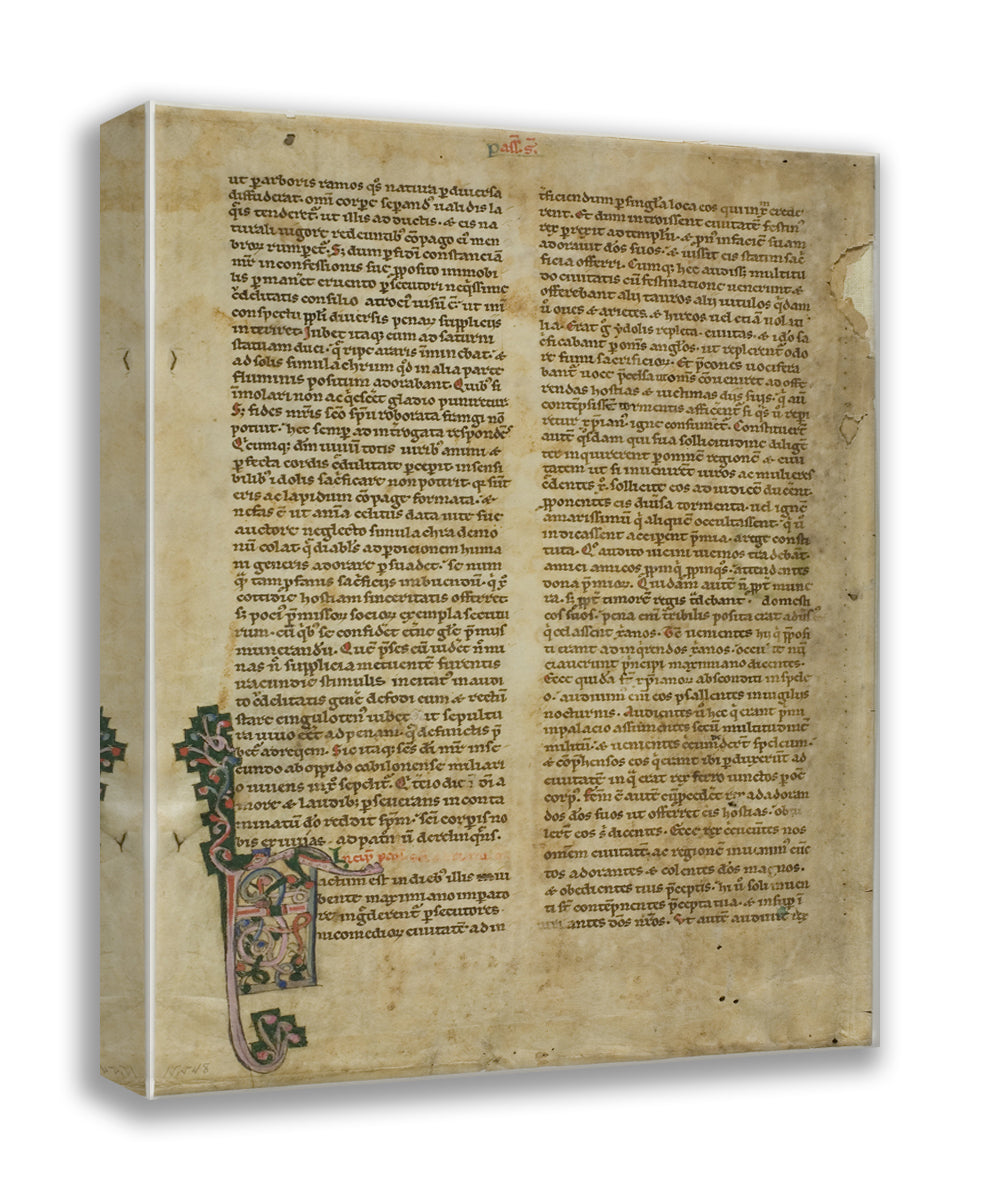 pass. s̄.
ut ꝑ arboris ramos q̄s natura ꝑ diuersa
diffuderat. om̄i corpe sepand' uali dis la
q̄is tenderet᷑. ut illis ad ductis. & eis na
turali uigore redeuntib' cōpago ei' men
broꝝ rumpet᷑. S; dum ꝑfidi constanciā
mr̄ in confessionis sue ꝓposito immobi
lis ꝑmanet cruento ꝑsecutori neq̄ssime
c̄delitatis consilio atroci' uisū ē. ut in
conspectu ppl̄i diuersis penaꝝ suppliciis
interiret. Iubet itaque eum ad saturni
statuam duci. q̄ ripe araris īminebat. &
ad solis simulachrum q̄d in alia parte
fluminis positum adorabant. Quib' si
īmolari non ac q̄esc̄et gladio puniretur.
S; fides mr̄is sc̄o sp̄u roborata frangi nō
potuit. hec semꝑ ad int̄rogata respondēs
Q̄cumq; dm̄ uiuū totis uirib' animi &
ꝑfecta cordis c̄dulitate ꝑcepit insensi
bilib' idolis sac̄ficare non poterit. q̄ sūt
eris ac lapidum cōpage formata. &
nefas ē ut anīa celitus data uite sue
auctore neglecto simulachra demo
nū colat q̄ diabl's ad ꝑdicionem huma
ni generis adorare ꝑsuadet. se num
q̄ tam ꝓfanis sac̄ficiis inbuendū. q̄ x̄
cottidie hostiam sinceritatis offerret
si poci' p̄missoꝝ socioꝝ exempla secutu
rum. cū q̄b' se confidet et̄ne gl̄e p̄mus
munerandū. Que p̄ses cū uidet n̄ mi
nas n̄ supplicia metuente furentis
iracundie stimulis incitat' inaudi
to c̄delitatis gene defodi eum & rectū
stare cingulo ten' iubet ut sepultu
ra uiuo eet ad penam. q̄ defunctis p̄
bet᷑ ad reqem. Sic itaq; sc̄s dī mr̄ inse
cundo ab oppido cabilonense miliari
o uiuens in x̄ sepelit᷑. Et t̄cio die ī dī a
more & laudib; ꝑseuerans in conta
minatū do reddit sp̄m. sc̄i corporis no
bis exuuias. ad patriā ū derelinq̄ns.
actum est in dieb' illis
bente maximiano imꝑato
re. ing̅derent᷑ ꝑsecutores
nicomedioꝝ ciuitatē ad in
t̄ficiendum ꝑ singl'a loca eos qui in x̄ crede
rent. Et dum introissent ciuitatē festin'
rex ꝑrexit ad templū. & ꝓn' in faciē suam
adorauit dōs suos. & iussit eis statim sac̄
ficia offerri. Cumq; hec audiss; multitu
do ciuitatis cū festinatione uenerunt &
offerebant alii tauros alii uitulos q̄dam
ū oues & arietes. & hircos uel etiā uolati
lia. Erat g̊ ydolis repleta ciuitas. & ideo sa
c̄ficabant ꝑ om̄s anglos. ut replerent odo
re fumi sacrificioꝝ. Et p̄cones uocifera
bant uoce p̄celsa ut om̄s c̄ueniret ad offe
rendas hostias & uictimas diis suis. q̄ aū
contēpsissē tormentis affic̄ent᷑ si q̄s ū repi
retur xp̄ian'. igne consumet᷑. Constituerē
autē q̄sdam qui sua sollicitudine diligēt
ter inquirerent ꝑ omnē regionē & ciui
tatem ut si inuenirēt uiros ac mulieres
c̄dentes x̄. sollicite eos ad iudicē ducent᷑.
ꝓponentes eis diūsa tormenta. uel ignē
amarissimū q̄ aliquē occultassent. q̄ ū
indicassent acciperent p̄mia. a rege consti
tuta. Q̊ audito uicini uicinos tradebāt.
amici amicos ꝓpinq̄ ꝓpinq̊s. attendentes
dona p̄mioꝝ. Quidam autē n̄ ꝓpt̄ mune
ra. s; ꝓpt̄ timorē regis t̄debant. domesti
cos suos. pena enī t̄ribilis posita erat adūs'
q̄ celassent xānos. Tē uenientes hii q̄ ꝓposi
ti erant ad inq̄rendos xānos.
ciauerunt p̄ncipi maximiano dicentes.
Ecce quidā st̄ xp̄ianoꝝ absconditi in spele
o. audiuim' enī eos psallentes in uigiliis
nocturnis. Audientes ū hec q̄ erant p̄mi
in palacio assumentes secū multitudinē
militū. & uenientes c̄cumdert speleum.
& cōphensos eos q̄ erant ibi ꝑduxerūt ad
ciuitatē in q̄ erat rex ferro uinctos ꝑ oē
corp'. fem̄ ē autē cū p̄cedet rex ad adoran
dos dōs suos ut offerret eis hostias.
lert eos s̄ dicentes. Ecce rex ceuentes nos
omēm ciuitatē. ac regionē inuenim' cūc
tos adorantes & colentes dōs magnos.
& obedientes tuis p̄ceptis. hi ū soli inuen
ti st̄ contēpnentes p̄cepta tua. & insup ī
antes dōs nr̄os. Vt autē audiuit rex